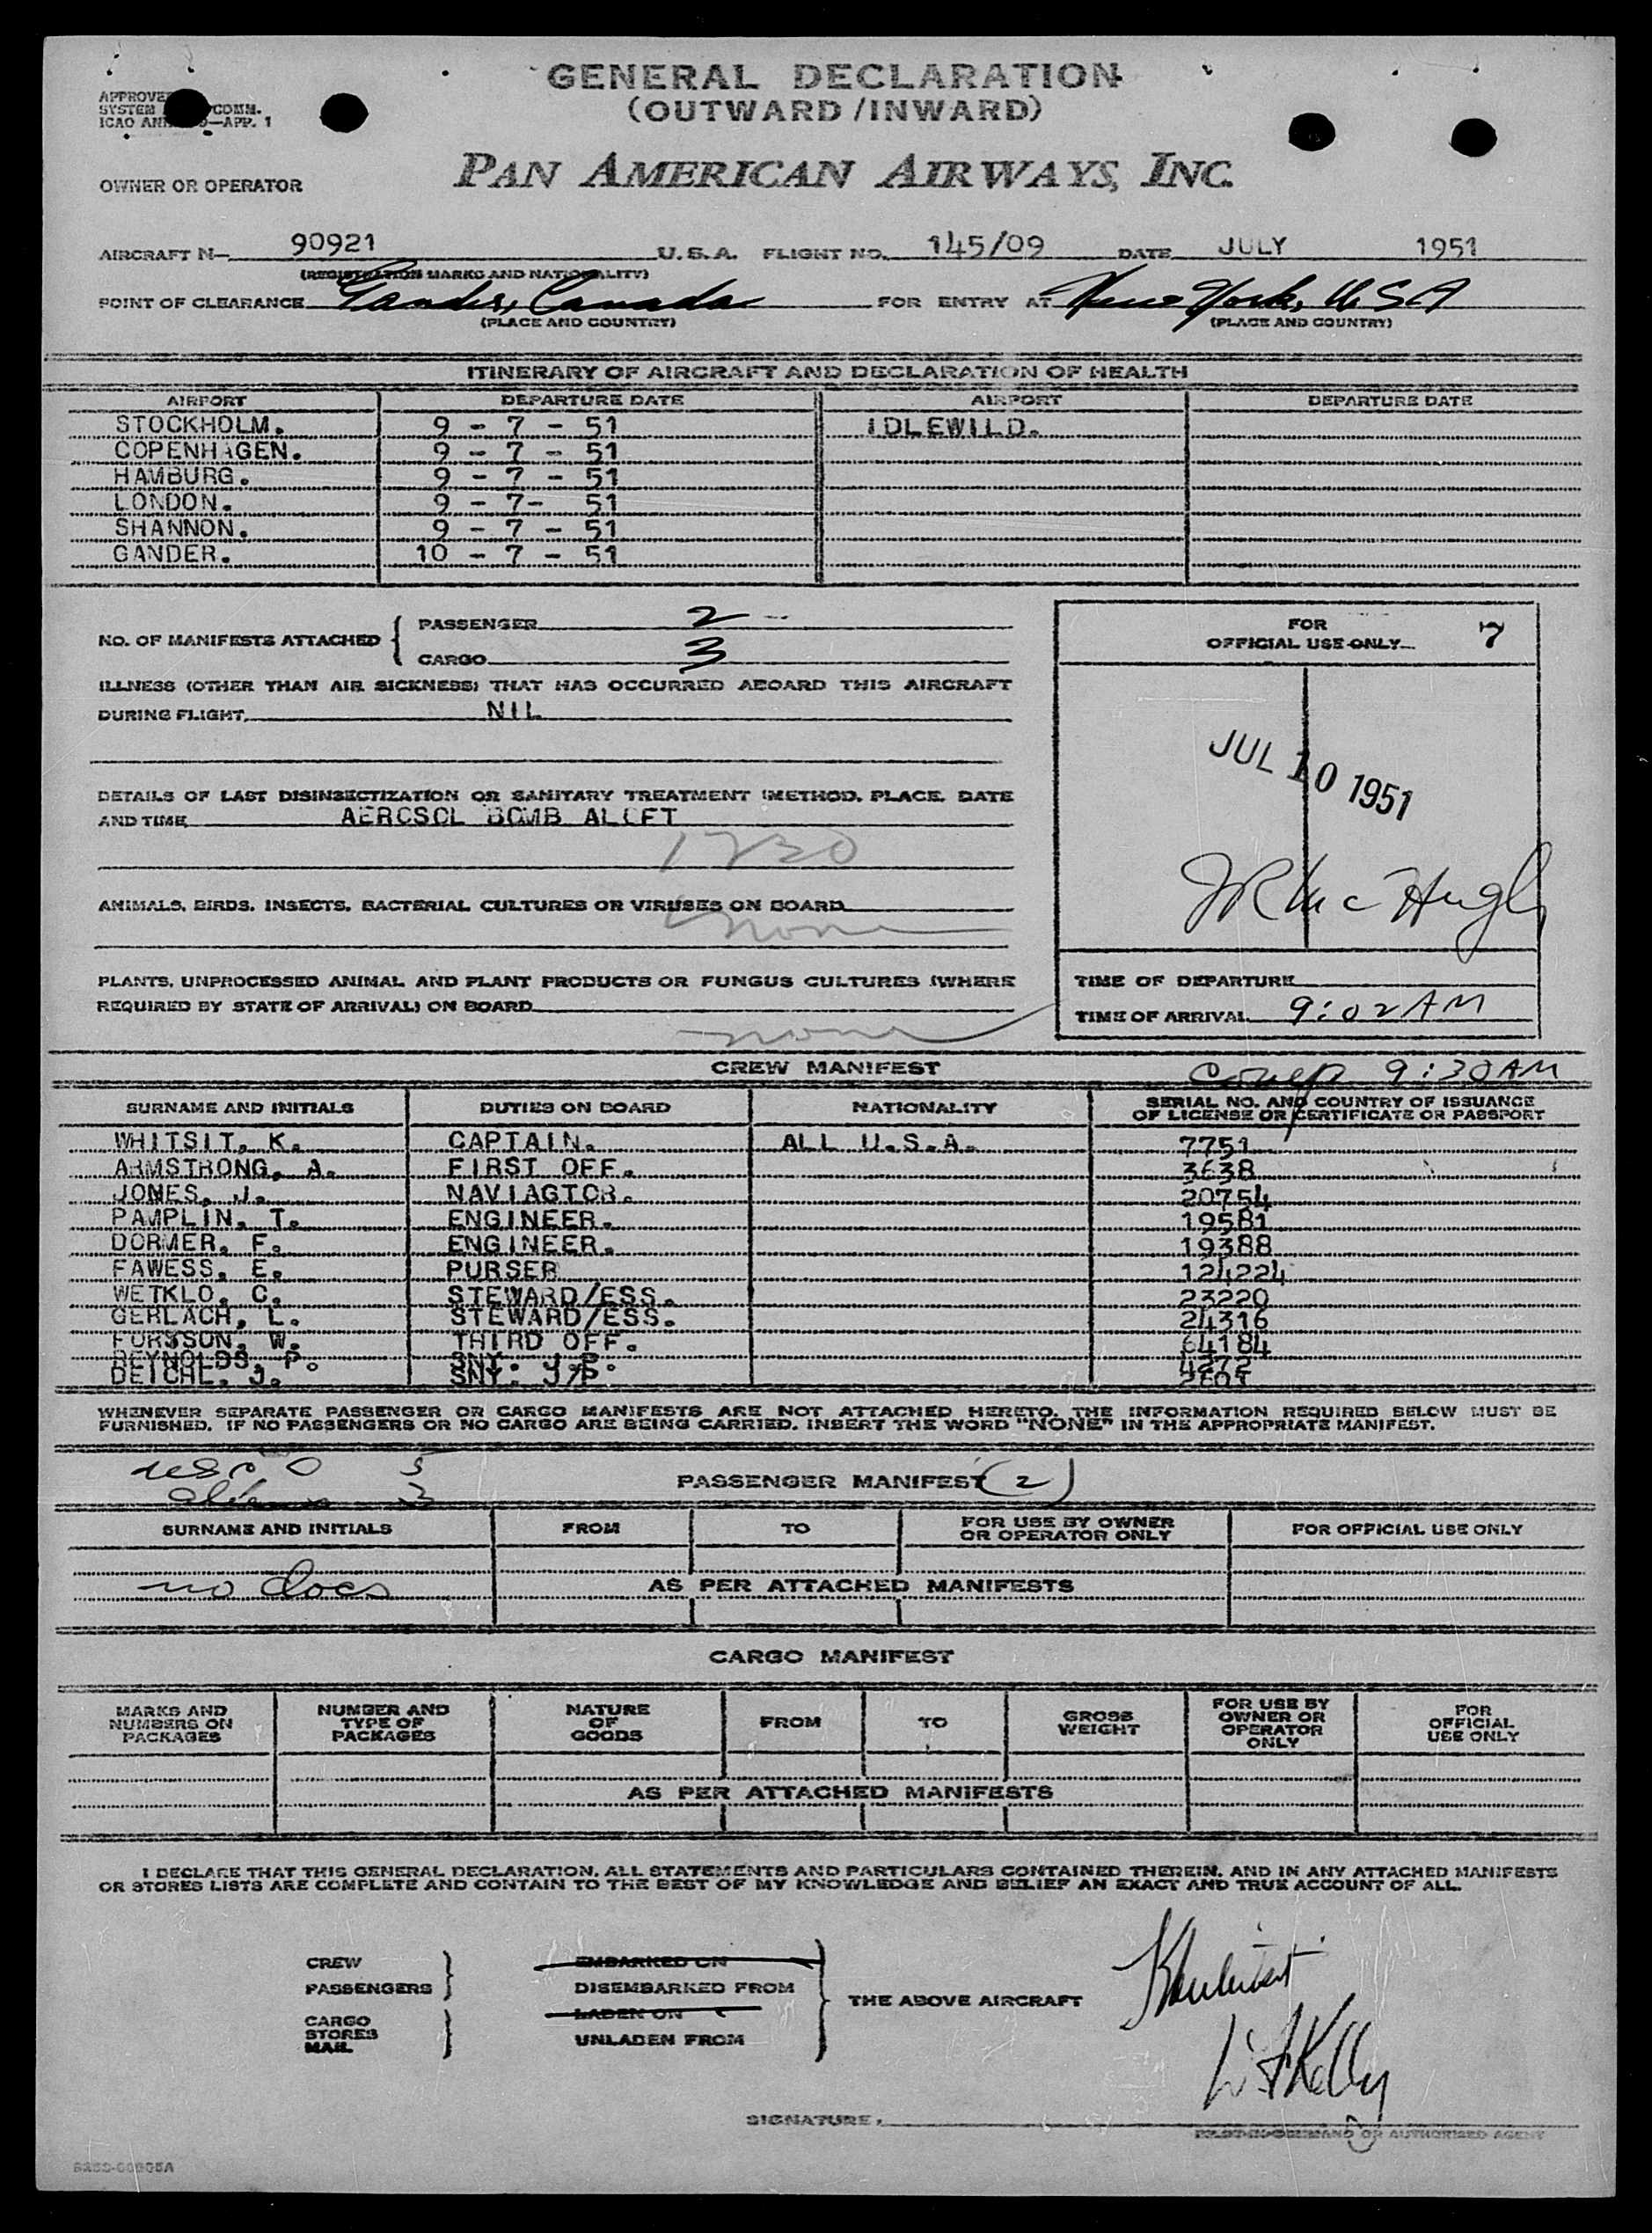 GENERAL DECLARATION
(OUTWARD/INWARD)
APPROVED COMM.
SYSTEM
ICAO —APP. 1
OWNER OR OPERATOR PAN AMERICAN AIRWAYS, INC.
AIRCRAFT N— 90921 U.S.A. FLIGHT NO. 145/09 DATE JULY 1951
(REGISTRATION MARKS AND NATIONALITY)
POINT OF CLEARANCE Gander, Canada FOR ENTRY AT New York, U S A
(PLACE AND COUNTRY) (PLACE AND COUNTRY)
ITINERARY OF AIRCRAFT AND DECLARATION OF HEALTH
AIRPORT DEPARTURE DATE AIRPORT DEPARTURE DATE
STOCKHOLM. 9 - 7 - 51 IDLEWILD.
COPENHAGEN. 9 - 7 - 51
HAMBURG. 9 - 7 - 51
LONDON. 9 - 7- 51
SHANNON. 9 - 7 - 51
GANDER. 10 - 7 - 51
NO. OF MANIFESTS ATTACHED
PASSENGER 2
CARGO 3
ILLNESS (OTHER THAN AIR SICKNESS) THAT HAS OCCURRED ABOARD THIS AIRCRAFT
DURING FLIGHT, NIL
DETAILS OF LAST DISINSECTIZATION OR SANITARY TREATMENT (METHOD, PLACE, DATE
AND TIME AEROSOL BOMB ALOFT
1230
ANIMALS, BIRDS, INSECTS, BACTERIAL CULTURES OR VIRUSES ON BOARD
none
PLANTS, UNPROCESSED ANIMAL AND PLANT PRODUCTS OR FUNGUS CULTURES (WHERE
REQUIRED BY STATE OF ARRIVAL) ON BOARD
none
FOR
OFFICIAL USE ONLY 7
JUL 10 1951
JR McHugh
TIME OF DEPARTURE
TIME OF ARRIVAL 9:02 AM
CREW MANIFEST 9:30 AM
SURNAME AND INITIALS DUTIES ON BOARD NATIONALITY SERIAL NO. AND COUNTRY OF ISSUANCE
OF LICENSE OR CERTIFICATE OR PASSPORT
WHITSIT, K. CAPTAIN. ALL U.S.A. 7751
ARMSTRONG, A. FIRST OFF. 3638
JONES, J. NAVIAGTOR. 20754
PAMPLIN, T. ENGINEER. 19581
DORMER, F. ENGINEER. 19388
FAWESS, E. PURSER 124224
WETKLO, C. STEWARD/ESS. 23220
GERLACH, L. STEWARD/ESS. 24316
W. THIRD OFF. 64184
REYNOLDS, P. 4272
DEICHL. J.
WHENEVER SEPARATE PASSENGER OR CARGO MANIFESTS ARE NOT ATTACHED HERETO, THE INFORMATION REQUIRED BELOW MUST BE
FURNISHED. IF NO PASSENGERS OR NO CARGO ARE BEING CARRIED, INSERT THE WORD "NONE" IN THE APPROPRIATE MANIFEST.
PASSENGER MANIFEST (2)
SURNAME AND INITIALS FROM TO FOR USE BY OWNER
OR OPERATOR ONLY FOR OFFICIAL USE ONLY
no docs AS PER ATTACHED MANIFESTS
CARGO MANIFEST
MARKS AND
NUMBERS ON
PACKAGES
NUMBER AND
TYPE OF
PACKAGES
NATURE
OF
GOODS
FROM
TO
GROSS
WEIGHT
FOR USE BY
OWNER OR
OPERATOR
ONLY
FOR
OFFICIAL
USE ONLY
AS PER ATTACHED MANIFESTS
I DECLARE THAT THIS GENERAL DECLARATION, ALL STATEMENTS AND PARTICULARS CONTAINED THEREIN, AND IN ANY ATTACHED MANIFESTS
OR STORES LISTS ARE COMPLETE AND CONTAIN TO THE BEST OF MY KNOWLEDGE AND BELIEF AN EXACT AND TRUE ACCOUNT OF ALL.
CREW
PASSENGERS
CARGO
STORES
MAIL
EMBARKED ON
DISEMBARKED FROM
LADEN ON
UNLADEN FROM
THE ABOVE AIRCRAFT
K Whitsit
Kelly
SIGNATURE,
PILOT-IN-COMMAND OR AUTHORISED AGENT